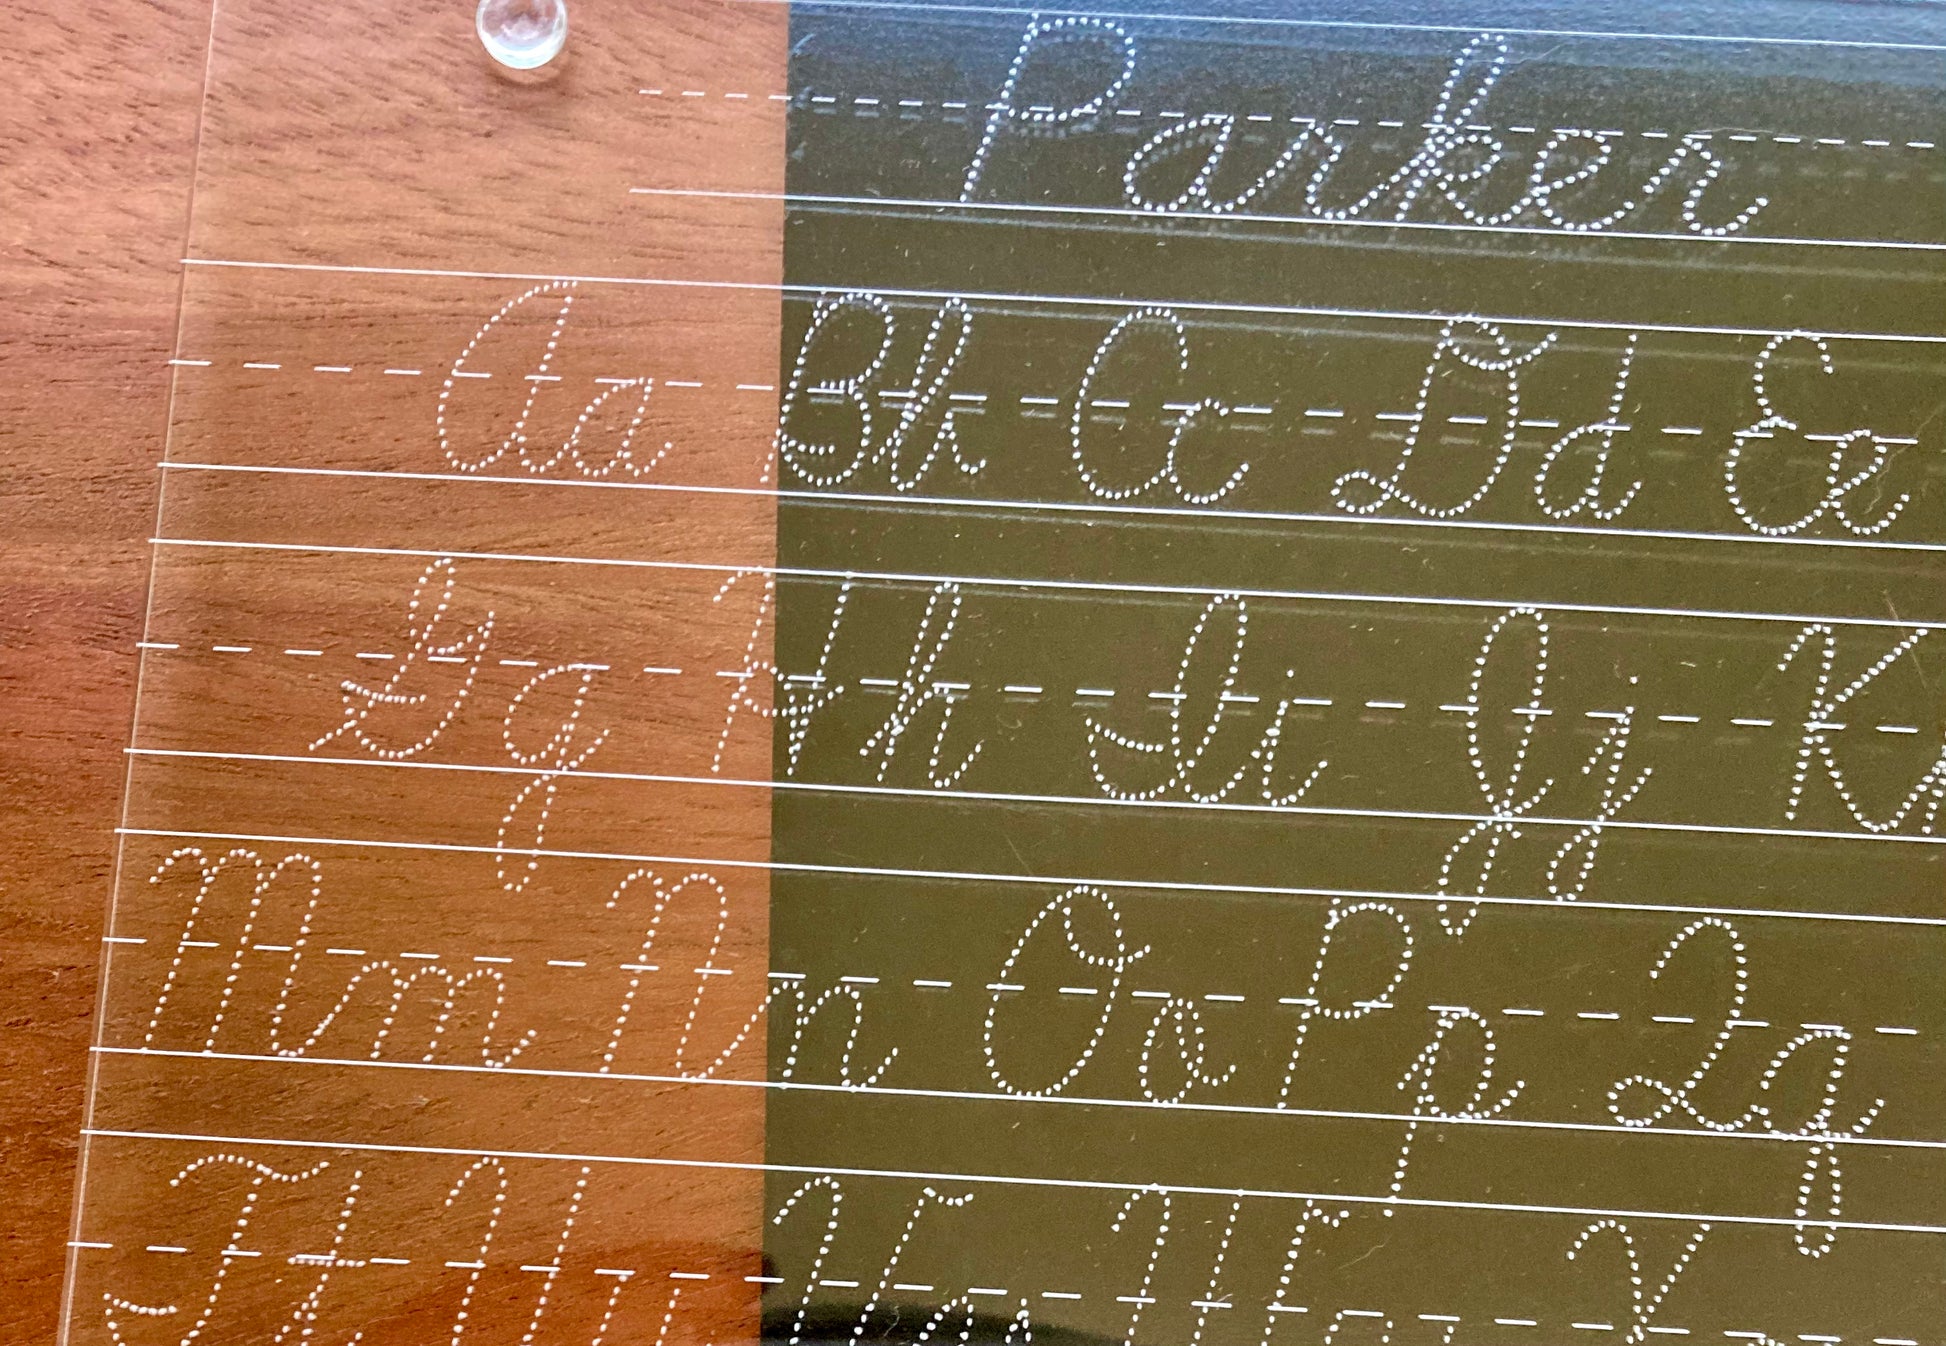 Parker
Aa Bb Cc Dd Ee
Gg Hh Ii Jj K
Mm Nn Oo Pp Qq
Tt U V W Y